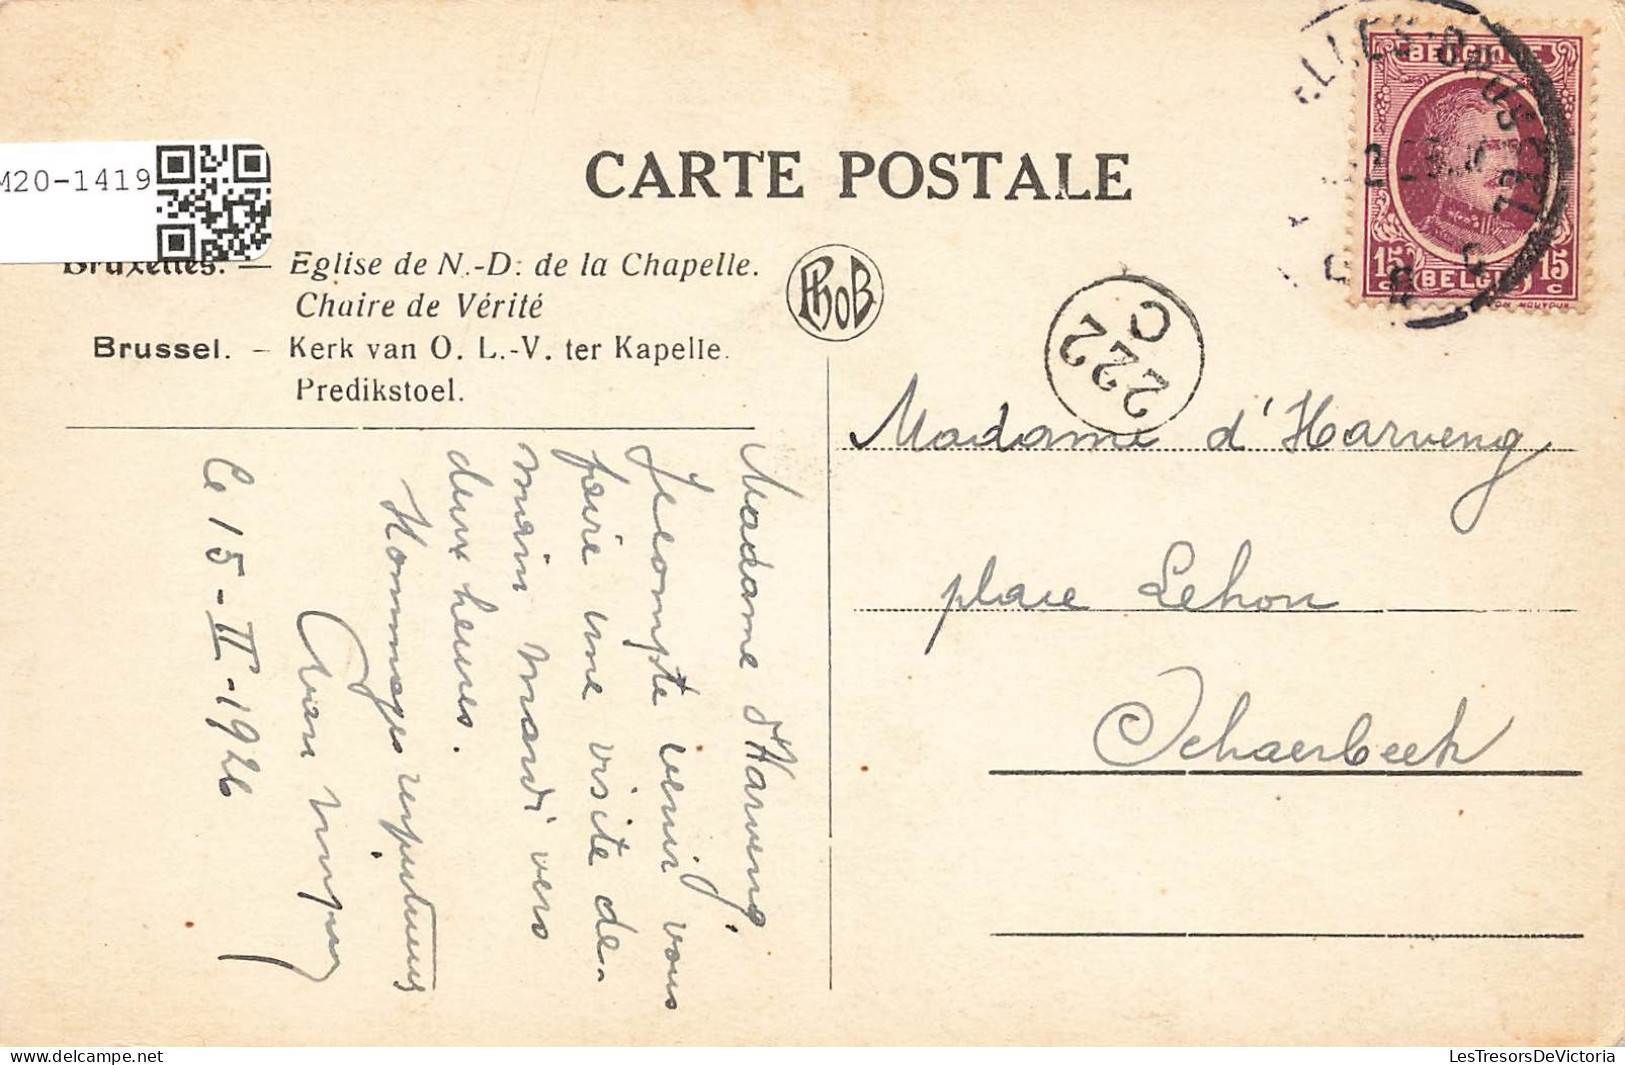 CARTE POSTALE
M20-1419
Bruxelles. — Eglise de N.-D. de la Chapelle.
Chaire de Vérité
Brussel. — Kerk van O. L.-V. ter Kapelle.
Predikstoel.
PhoB
222
C
BELGIQUE
15 c BELGIË 15 c
Madame d'Harveng
place Lehon
Schaerbeek
Madame d'Harveng,
Je compte venir vous
faire une visite de-
main mardi vers
deux heures.
Hommages respectueux
Le 15-II-1926
LesTresorsDeVictoria